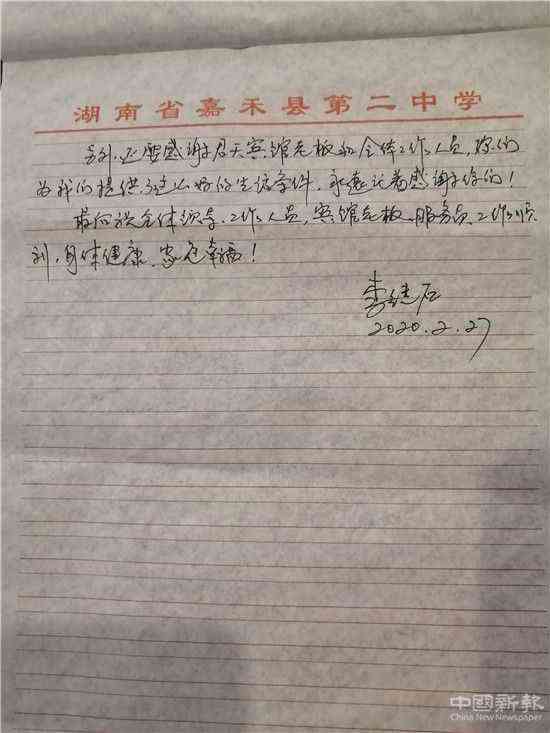 湖南省嘉禾县第二中学
另外,还要感谢君天宾馆老板和全体工作人员,你们
为我们提供了这么好的生活条件,永远记着感谢你们!
最后祝全体领导、工作人员,宾馆老板、服务员工作顺
利,身体健康、家庭幸福!
李建石
2020.2.27
中國新報
China New Newspaper